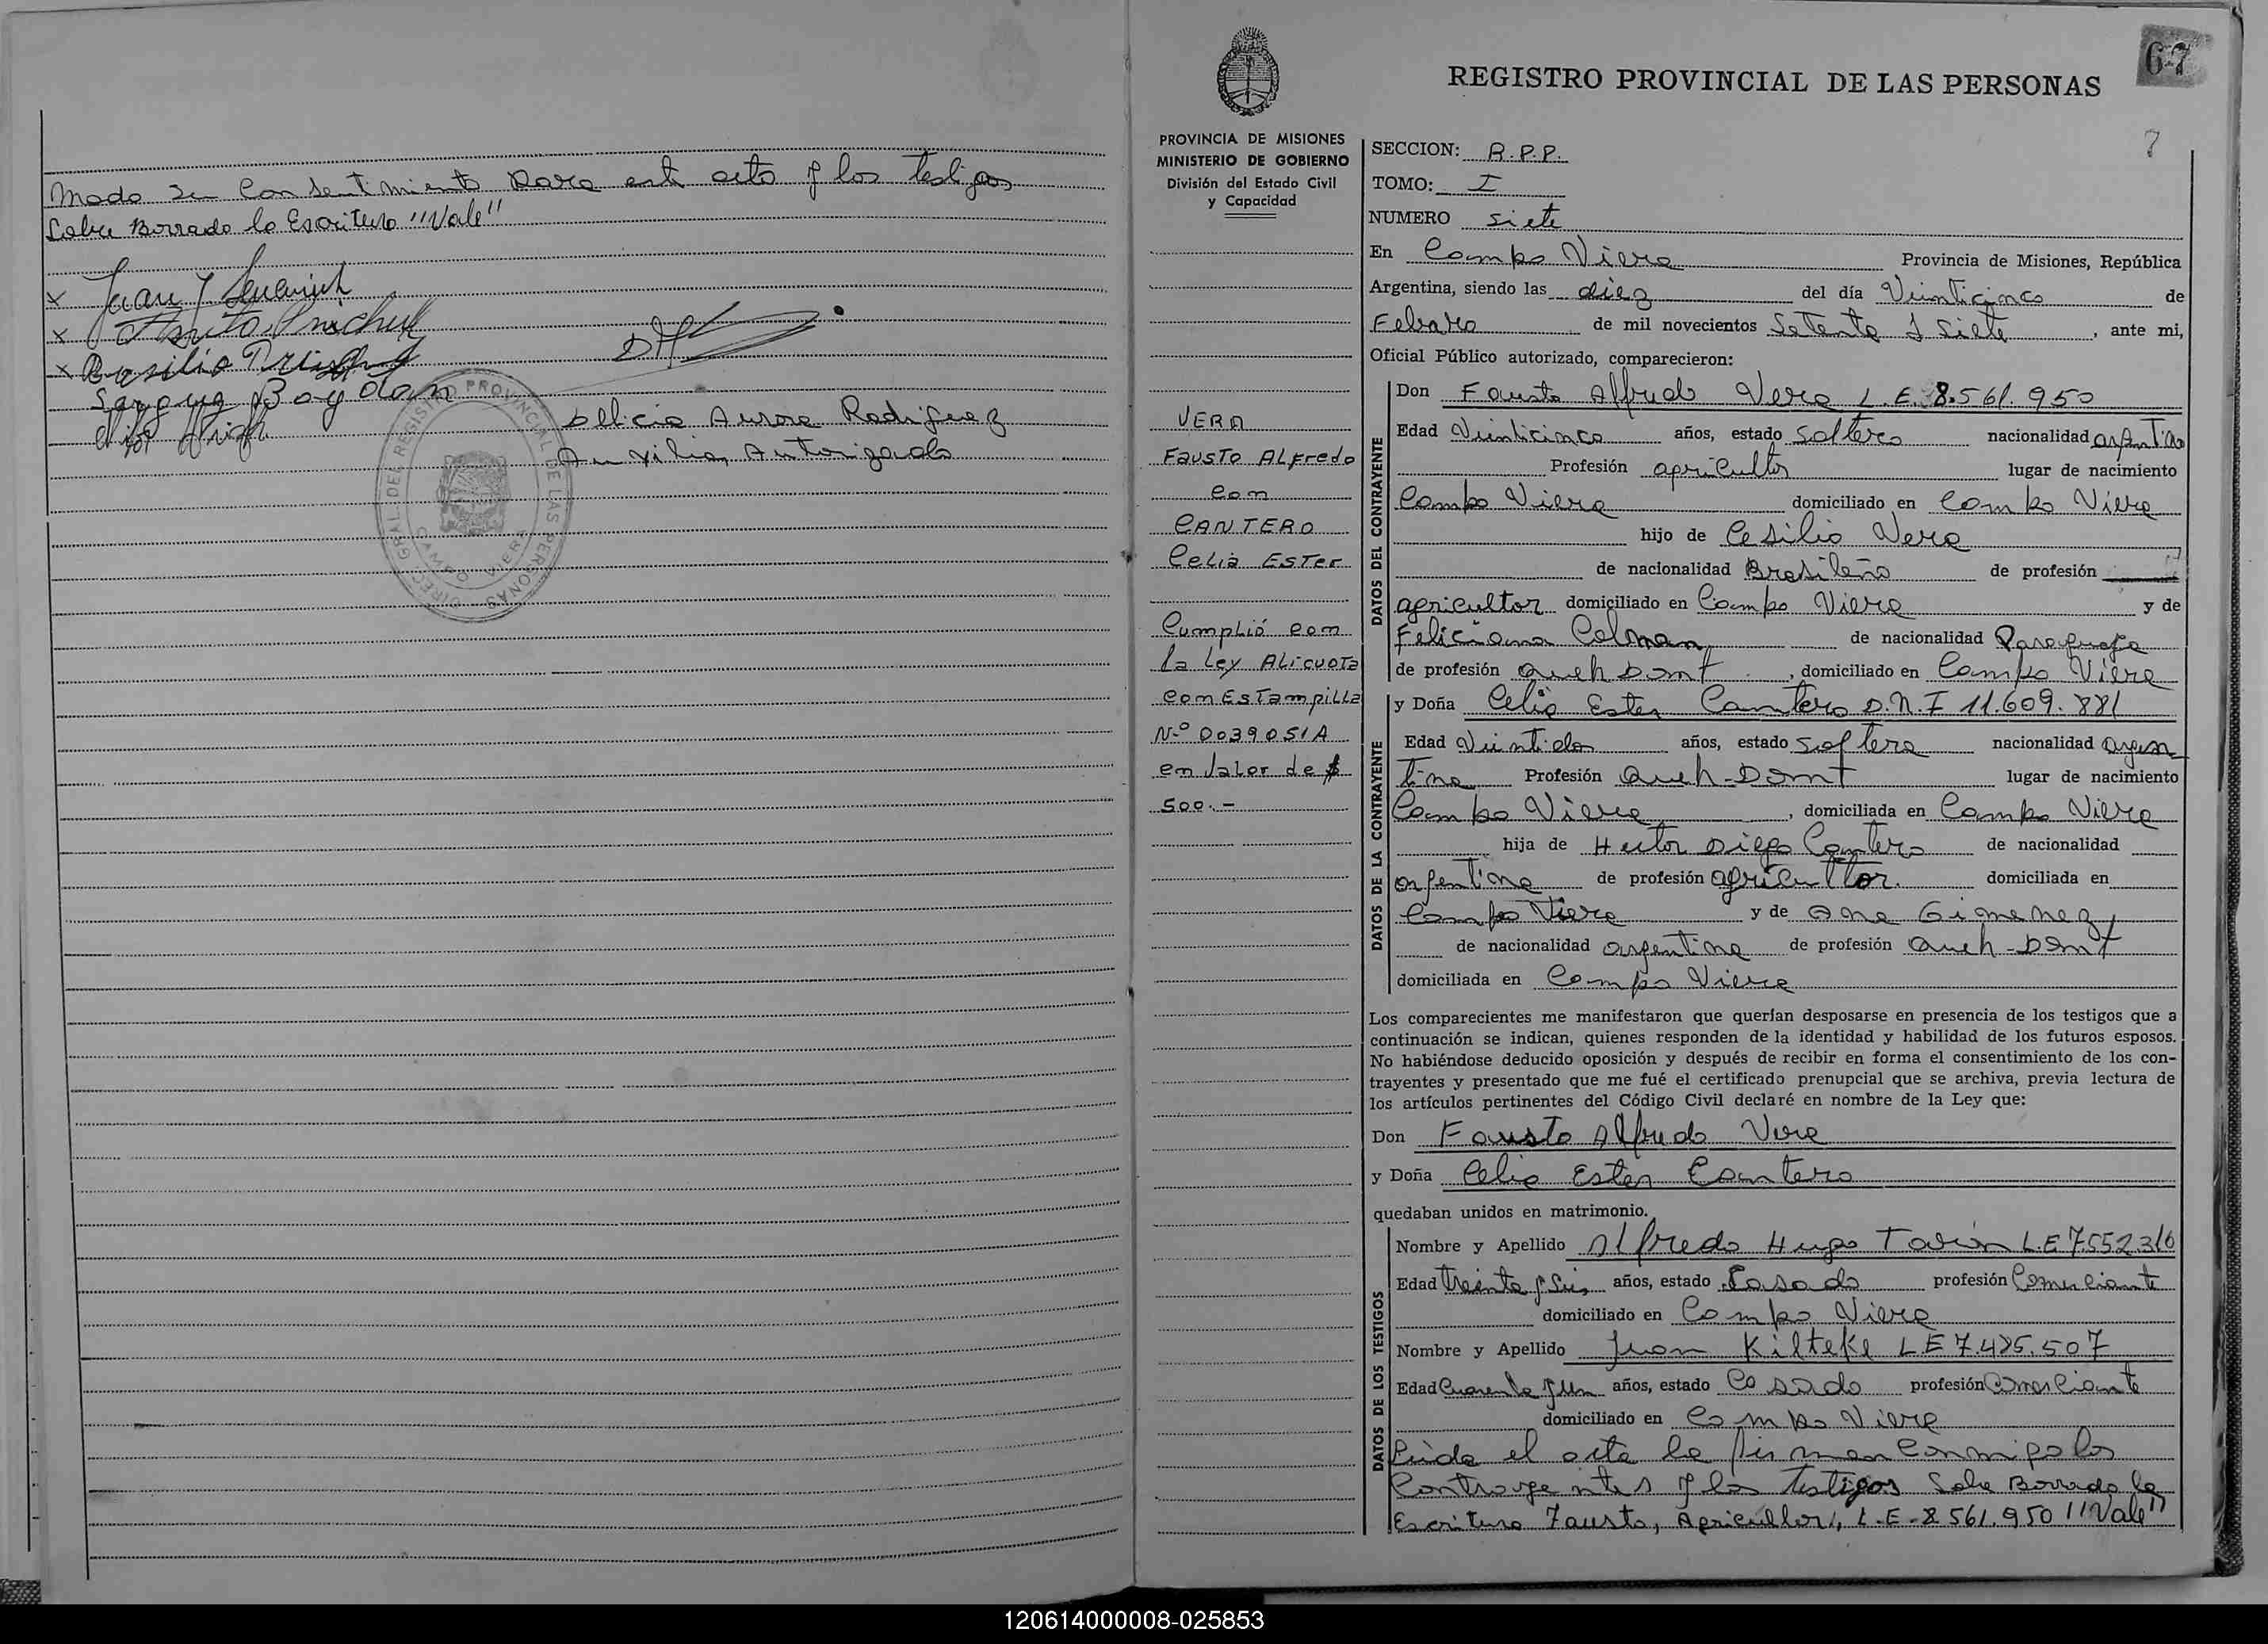 mado su Consentimiento para este acto y los testigos
Sobre Borrado la Escritura "Vale"
x Juan J
x
x Basilio
Bogdan
Delicia Aurora Rodriguez
Auxiliar Autorizada
DIREC. GRAL. DEL REGISTRO PROVINCIAL DE LAS PERSONAS
CAMPO VIERA
67
REGISTRO PROVINCIAL DE LAS PERSONAS
7
PROVINCIA DE MISIONES
MINISTERIO DE GOBIERNO
División del Estado Civil
y Capacidad
VERA
Fausto Alfredo
con
CANTERO
Celia Ester
Cumplió con
la Ley Alicuota
con Estampilla
Nº 0039051A
en Valor de $
500.-
SECCION: R.P.P.
TOMO: I
NUMERO siete
En Campo Viera Provincia de Misiones, República
Argentina, siendo las diez del día Veinticinco de
Febrero de mil novecientos Setenta y Siete, ante mi,
Oficial Público autorizado, comparecieron:
DATOS DEL CONTRAYENTE
Don Fausto Alfredo Vera L.E. 8.561.950
Edad Veinticinco años, estado soltero nacionalidad argentino
Profesión agricultor lugar de nacimiento
Campo Viera domiciliado en Campo Viera
hijo de Cesilio Vera
de nacionalidad Brasileño de profesión
agricultor domiciliado en Campo Viera y de
Feliciana Colman de nacionalidad Paraguaya
de profesión queh Domt, domiciliado en Campo Viera
DATOS DE LA CONTRAYENTE
y Doña Celia Ester Cantero D.N.I 11.609.881
Edad Veintidos años, estado soltera nacionalidad argen
tina Profesión queh-Domt lugar de nacimiento
Campo Viera, domiciliada en Campo Viera
hija de Hector Diego Cantero de nacionalidad
argentina de profesión agricultor. domiciliada en
Campo Viera y de Ana Gimenez,
de nacionalidad argentina de profesión queh-Domt
domiciliada en Campo Viera
Los comparecientes me manifestaron que querían desposarse en presencia de los testigos que a
continuación se indican, quienes responden de la identidad y habilidad de los futuros esposos.
No habiéndose deducido oposición y después de recibir en forma el consentimiento de los con-
trayentes y presentado que me fué el certificado prenupcial que se archiva, previa lectura de
los artículos pertinentes del Código Civil declaré en nombre de la Ley que:
Don Fausto Alfredo Vera
y Doña Celia Ester Cantero
quedaban unidos en matrimonio.
DATOS DE LOS TESTIGOS
Nombre y Apellido Alfredo Hugo L.E 7.552.316
Edad Treinta y Seis años, estado Casado profesión Comerciante
domiciliado en Campo Viera
Nombre y Apellido Juan Kilteke L E 7.485.507
Edad Cuarenta y Un años, estado Casado profesión Comerciante
domiciliado en Campo Viera
Leida el acta la firman Conmigo los
Contrayentes y los testigos Sobre Borrado la
Escritura Fausto, Agricultor, L-E-8561.950 "Vale"
120614000008-025853